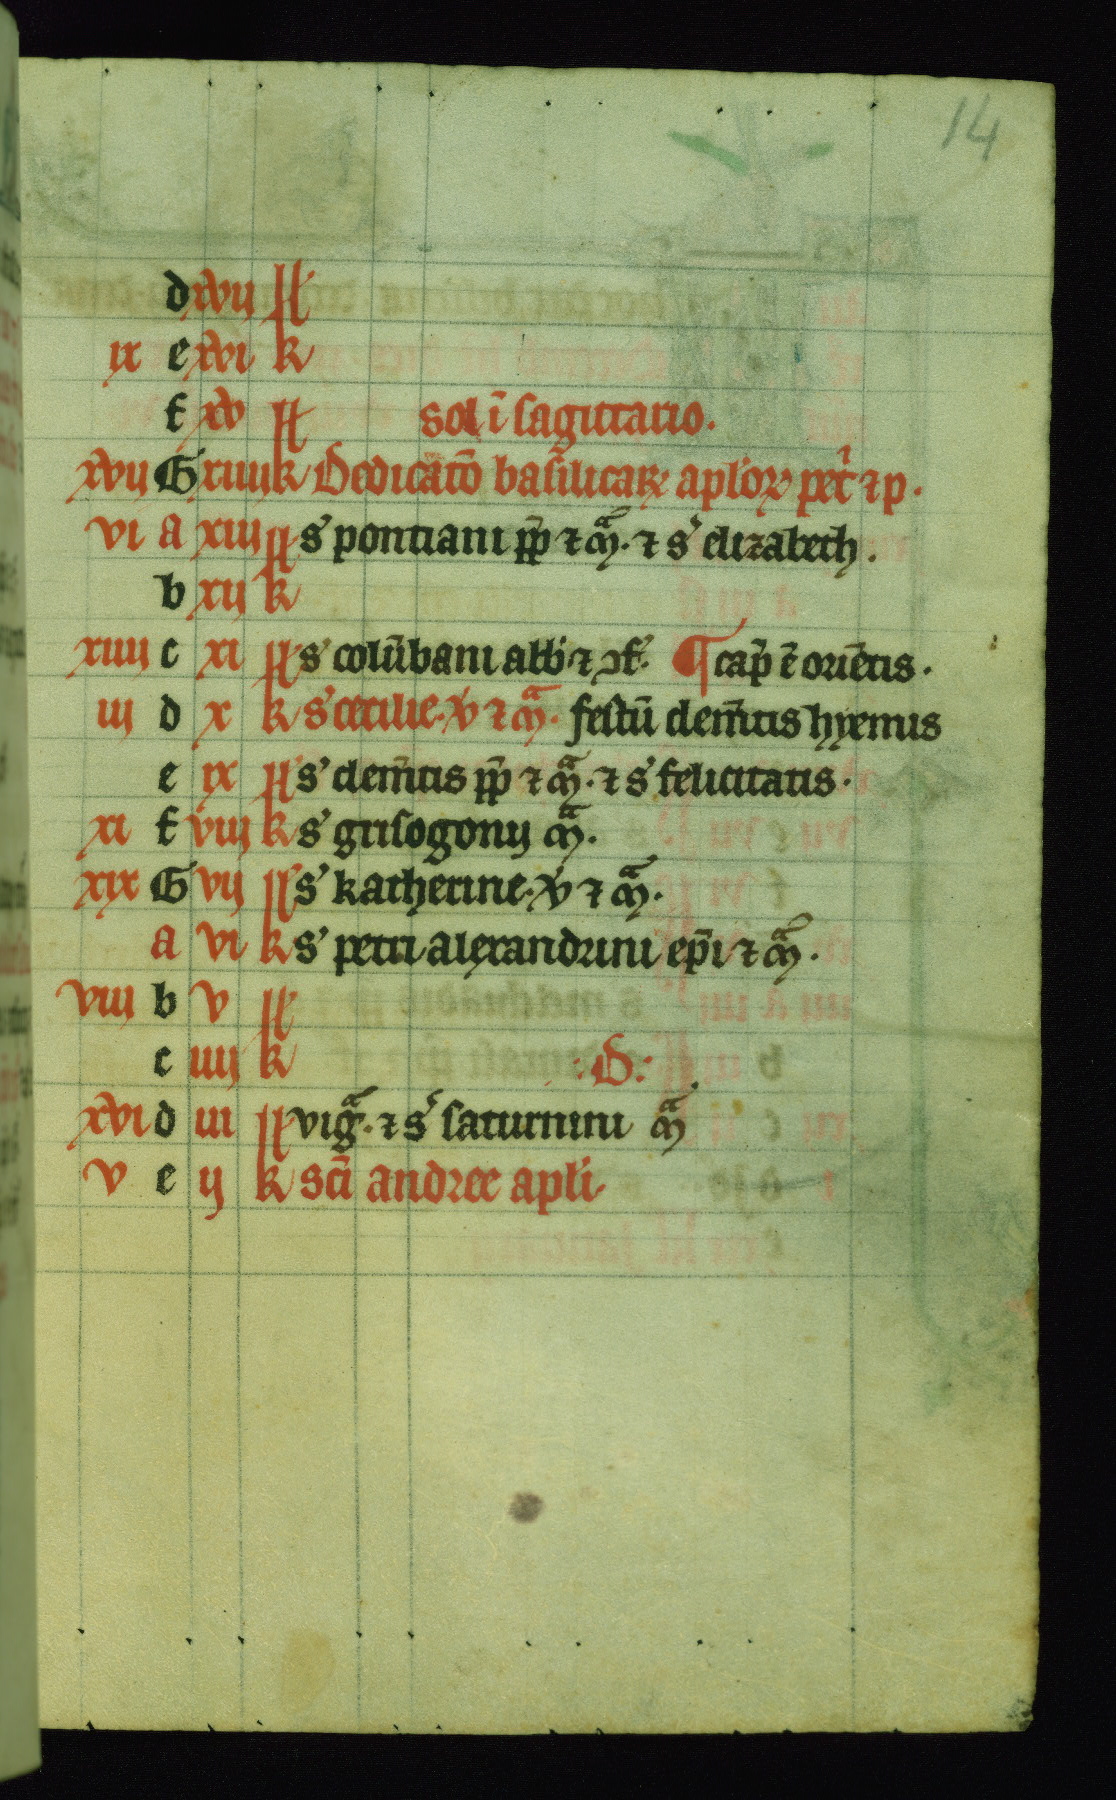 14
d xvii kl
ix e xvi k
f xv kl sol ī sagittario.
xvii G xiiii k Dedicatō basilicaꝝ aploꝝ pet᷑ ⁊ p.
vi a xiii kl s pontiani pp̄ ⁊ m̄. ⁊ s elizabeth.
b xii k
xiiii c xi kl s colūbani abb ⁊ ↄf. ¶ cap̄ ē oriētis.
iii d x k s cecilie. v̄ ⁊ m̄. festū clem̄tis hyemus
e ix kl s clem̄tis pp̄ ⁊ m̄. ⁊ s felicitatis.
xi f viii k s grisogonij m̄.
xix G vii kl s katherine. v̄ ⁊ m̄.
a vi k s petri alexandrini ep̄i ⁊ m̄.
viii b v kl
c iiii k .D:
xvi d iii kl viḡ. ⁊ s saturnini m̄
v e ii k scī andree apli.